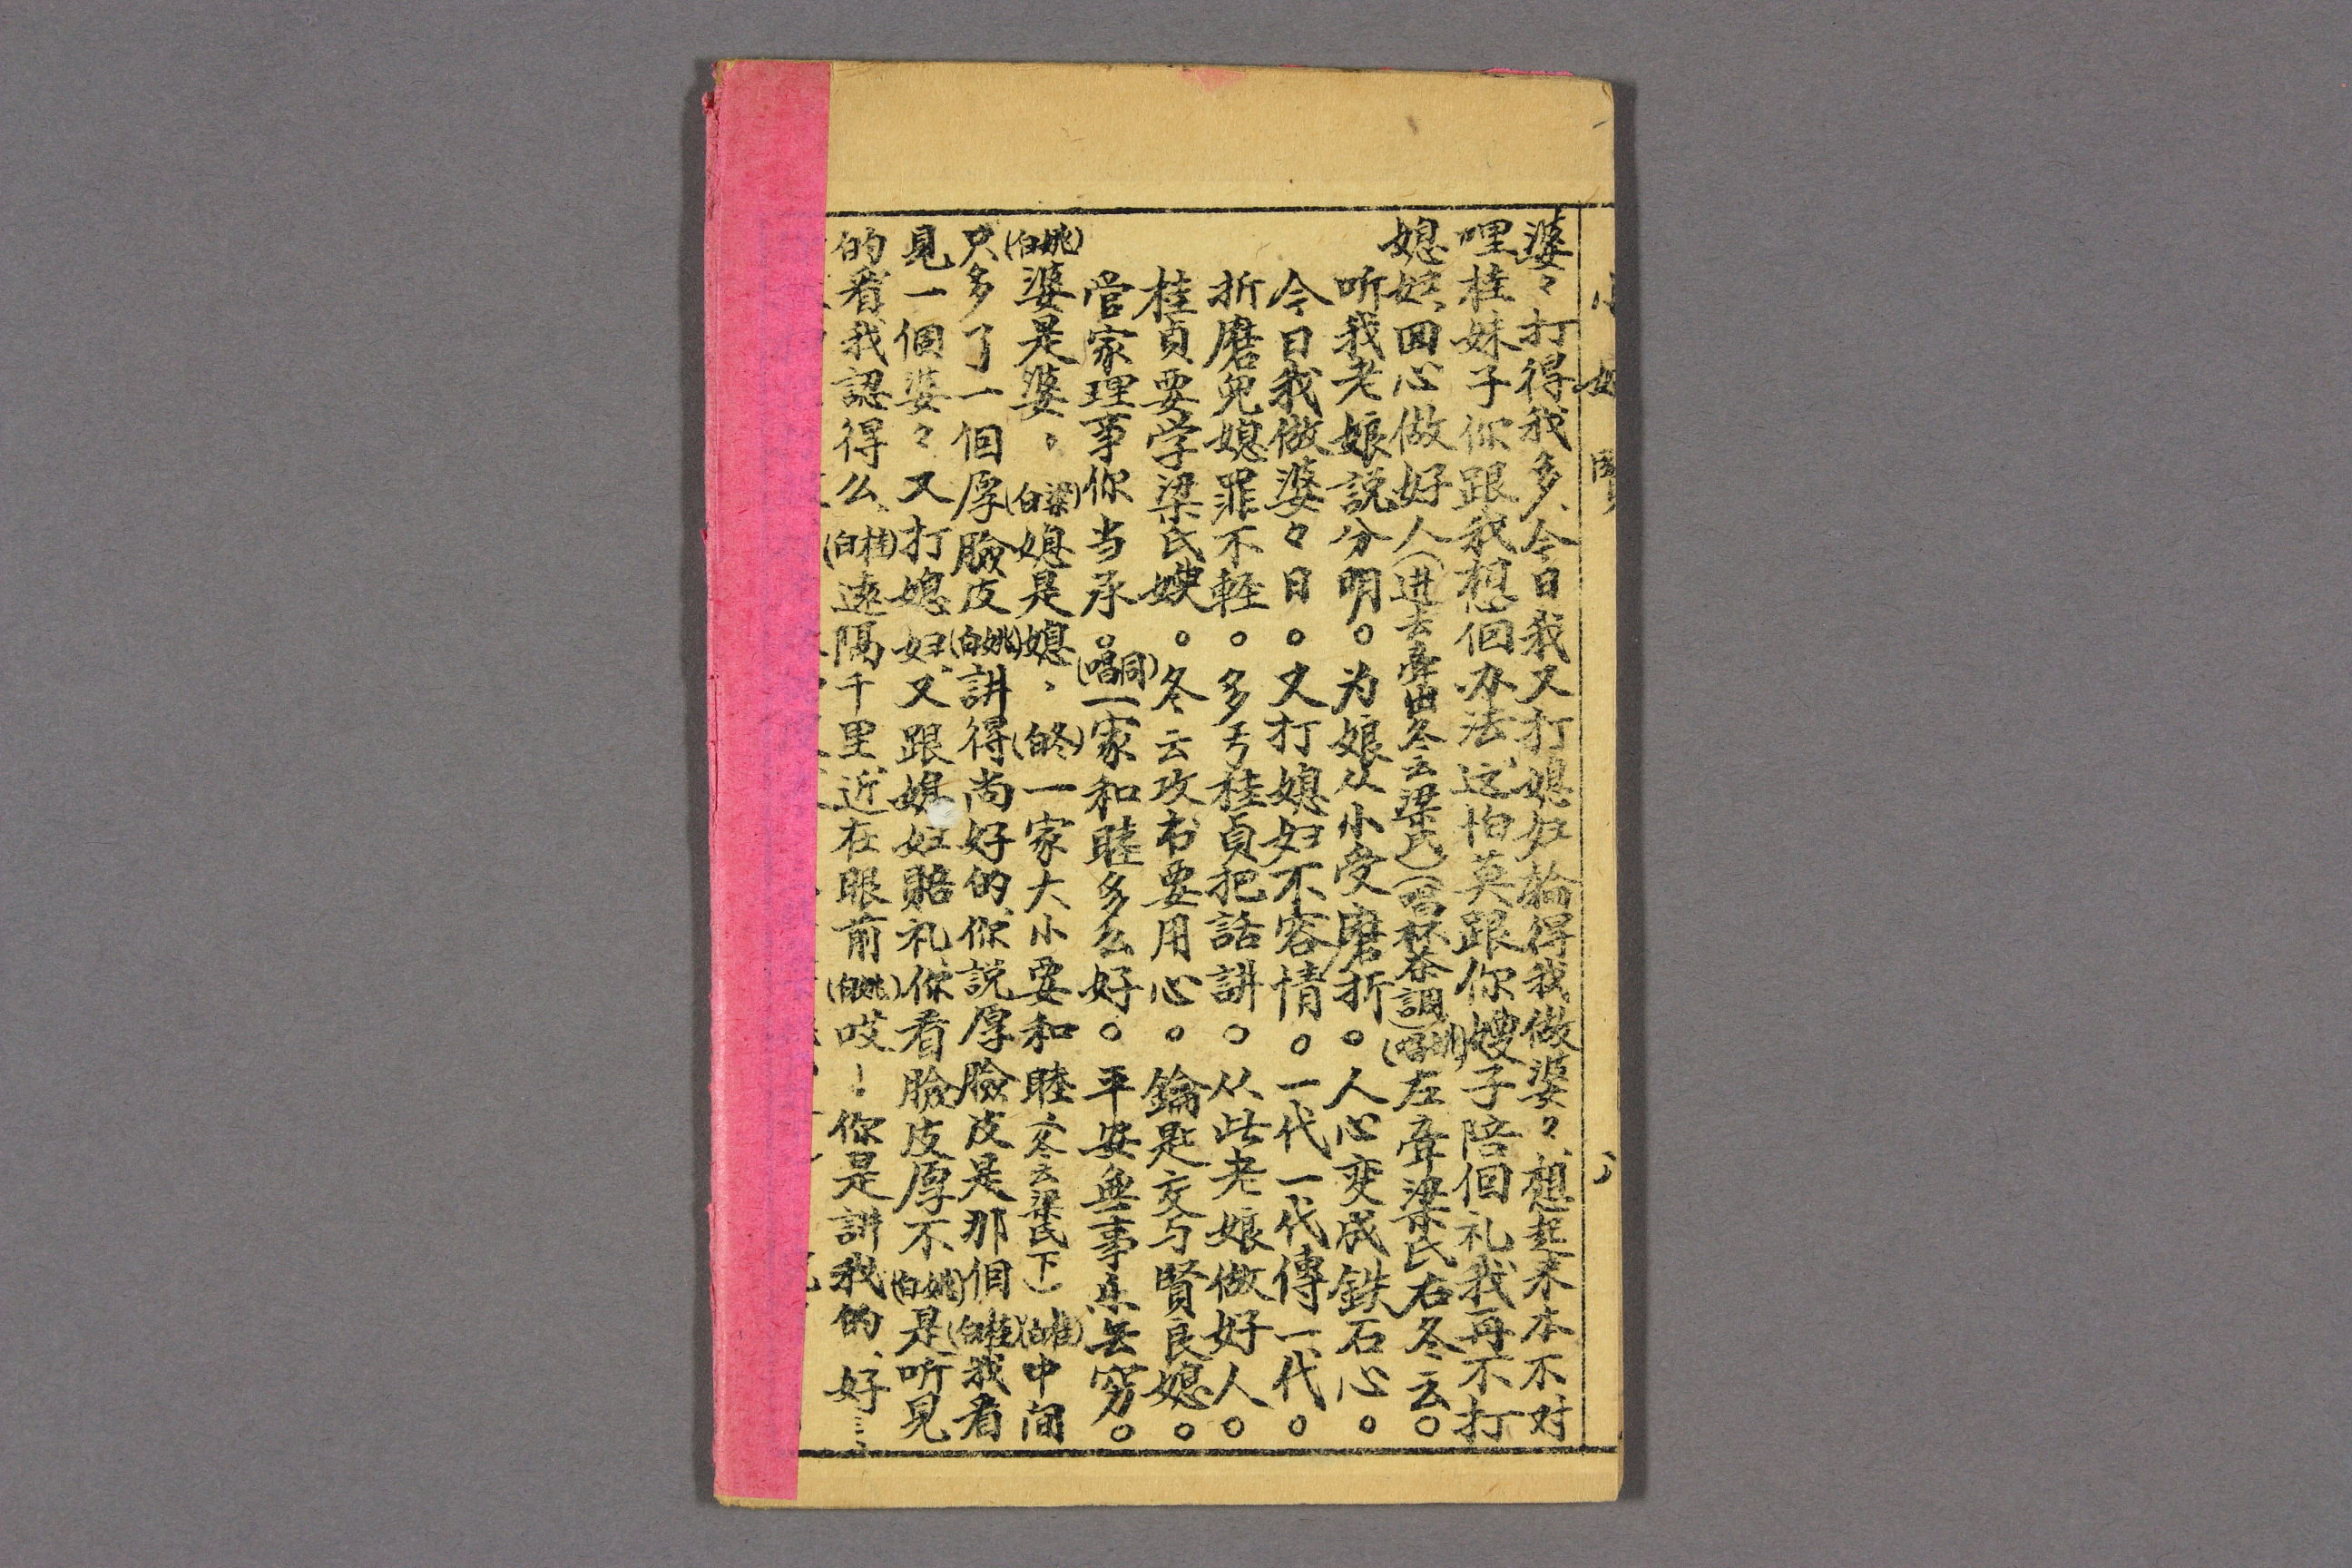 婆〻打得我多、今日我又打媳妇輪得我做婆〻、想起来本不对
哩桂妹子你跟我想個办法、这怕英跟你嫂子陪個礼我再不打
媳妇、回心做好人(進去牽出冬云梁氏)(唱杯茶調)(姚唱)左牽梁氏右冬云。
听我老娘説分明。为娘从小受磨折。人心变成鉄石心。
今日我做婆〻日。又打媳妇不容情。一代一代傳一代。
折磨兒媳罪不輕。多亏桂貞把話講。从此老娘做好人。
桂貞要学梁氏嫂。冬云攻书要用心。鑰匙交与賢良媳。
管家理事你当承。(同唱)一家和睦多么好。平安無事乐無窮。
(姚白)婆是婆。(梁白)媳是媳、(冬白)一家大小要和睦(冬云梁氏下)(桂白)中间
只多了一個厚臉皮(姚白)講得尚好的、你説厚臉皮是那個(桂白)我看
見一個婆〻又打媳妇、又跟媳妇賠礼、你看臉皮厚不(姚白)是听見
的看、我認得么、(桂白)遠隔千里、近在眼前(姚白)哎！你是講我的、好……